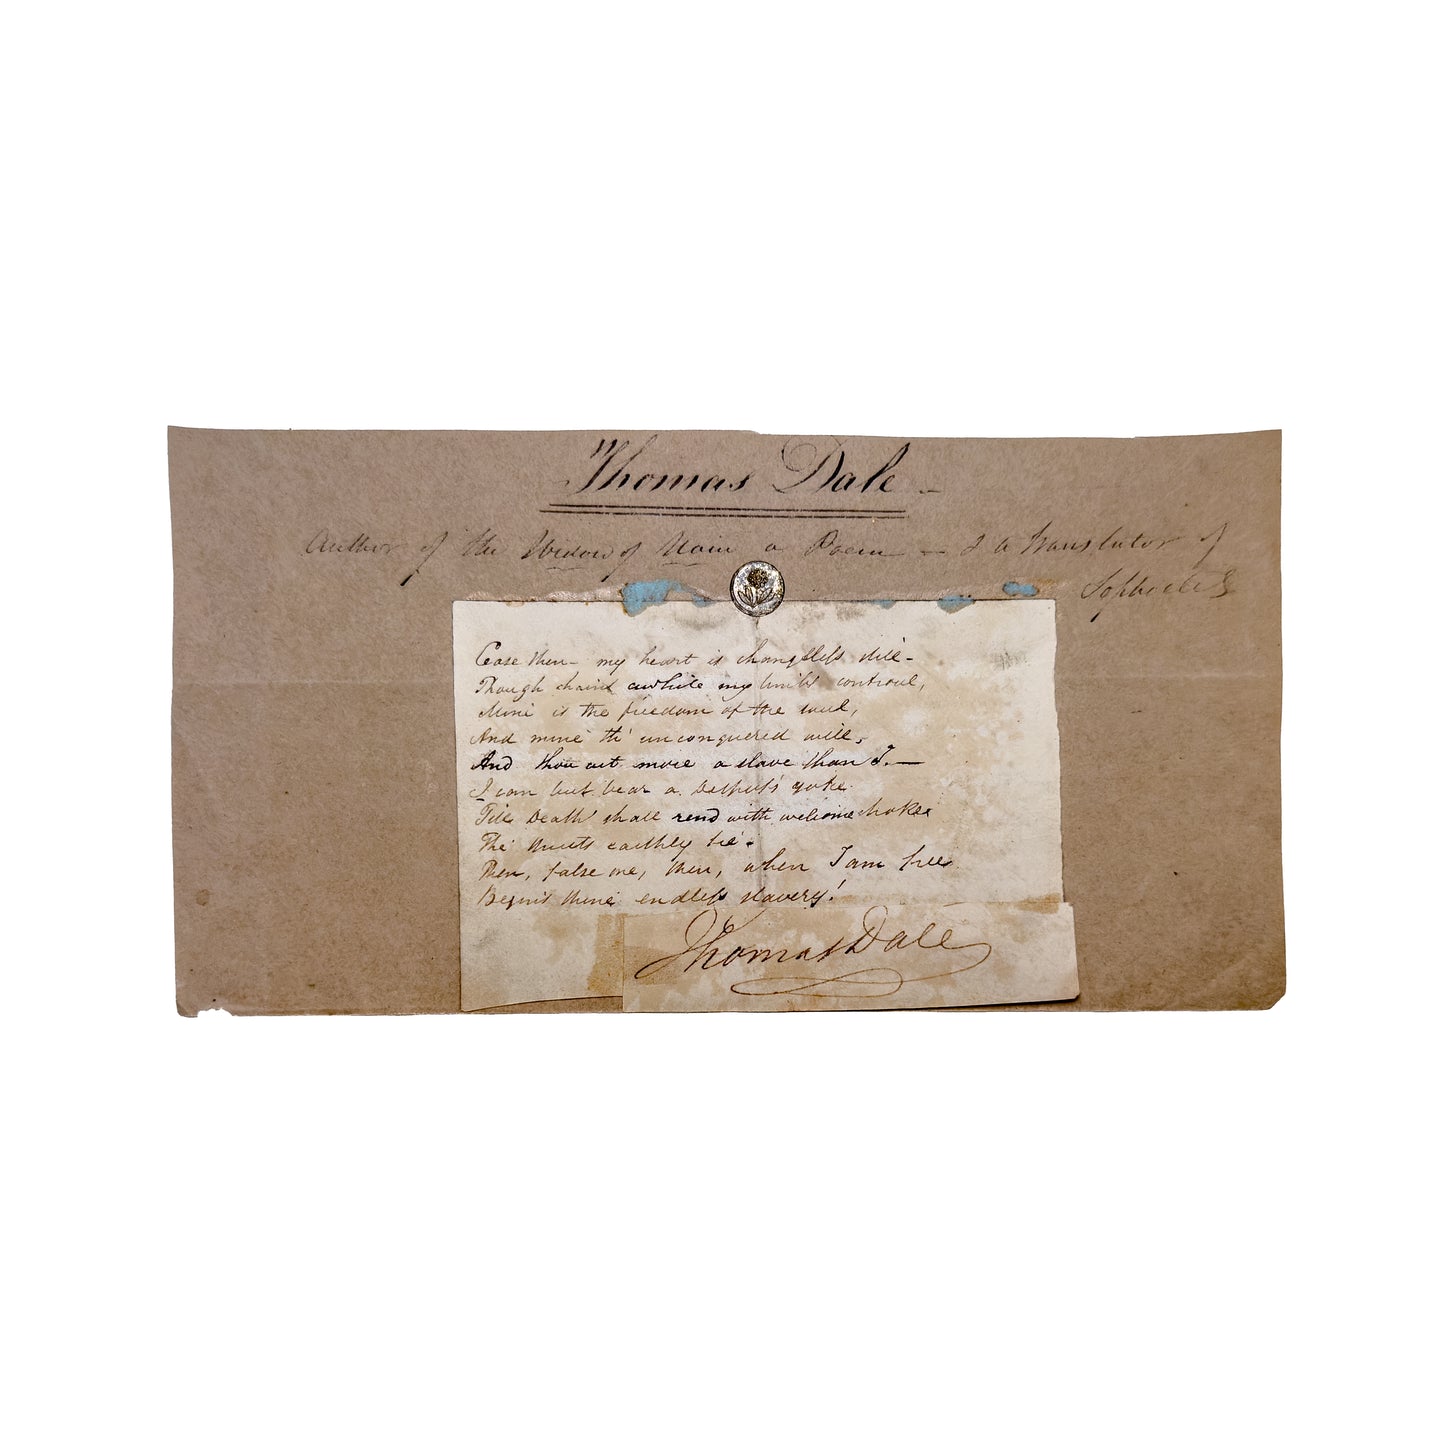 Thomas Dale -
Author of the Widow of Nain a Poem — & a Translator of
Sophocles
Cease then - my heart is changeless still -
Though chain'd awhile my limbs controul,
Mine is the freedom of the soul,
And mine th' unconquered will,
And thou art more a slave than I. —
I can but bear a Despot's yoke
Till Death shall rend with welcome stroke
The earthly tie -
Then, false one, then, when I am free
Begins thine endless slavery!
Thomas Dale